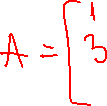 A = [ 1
3